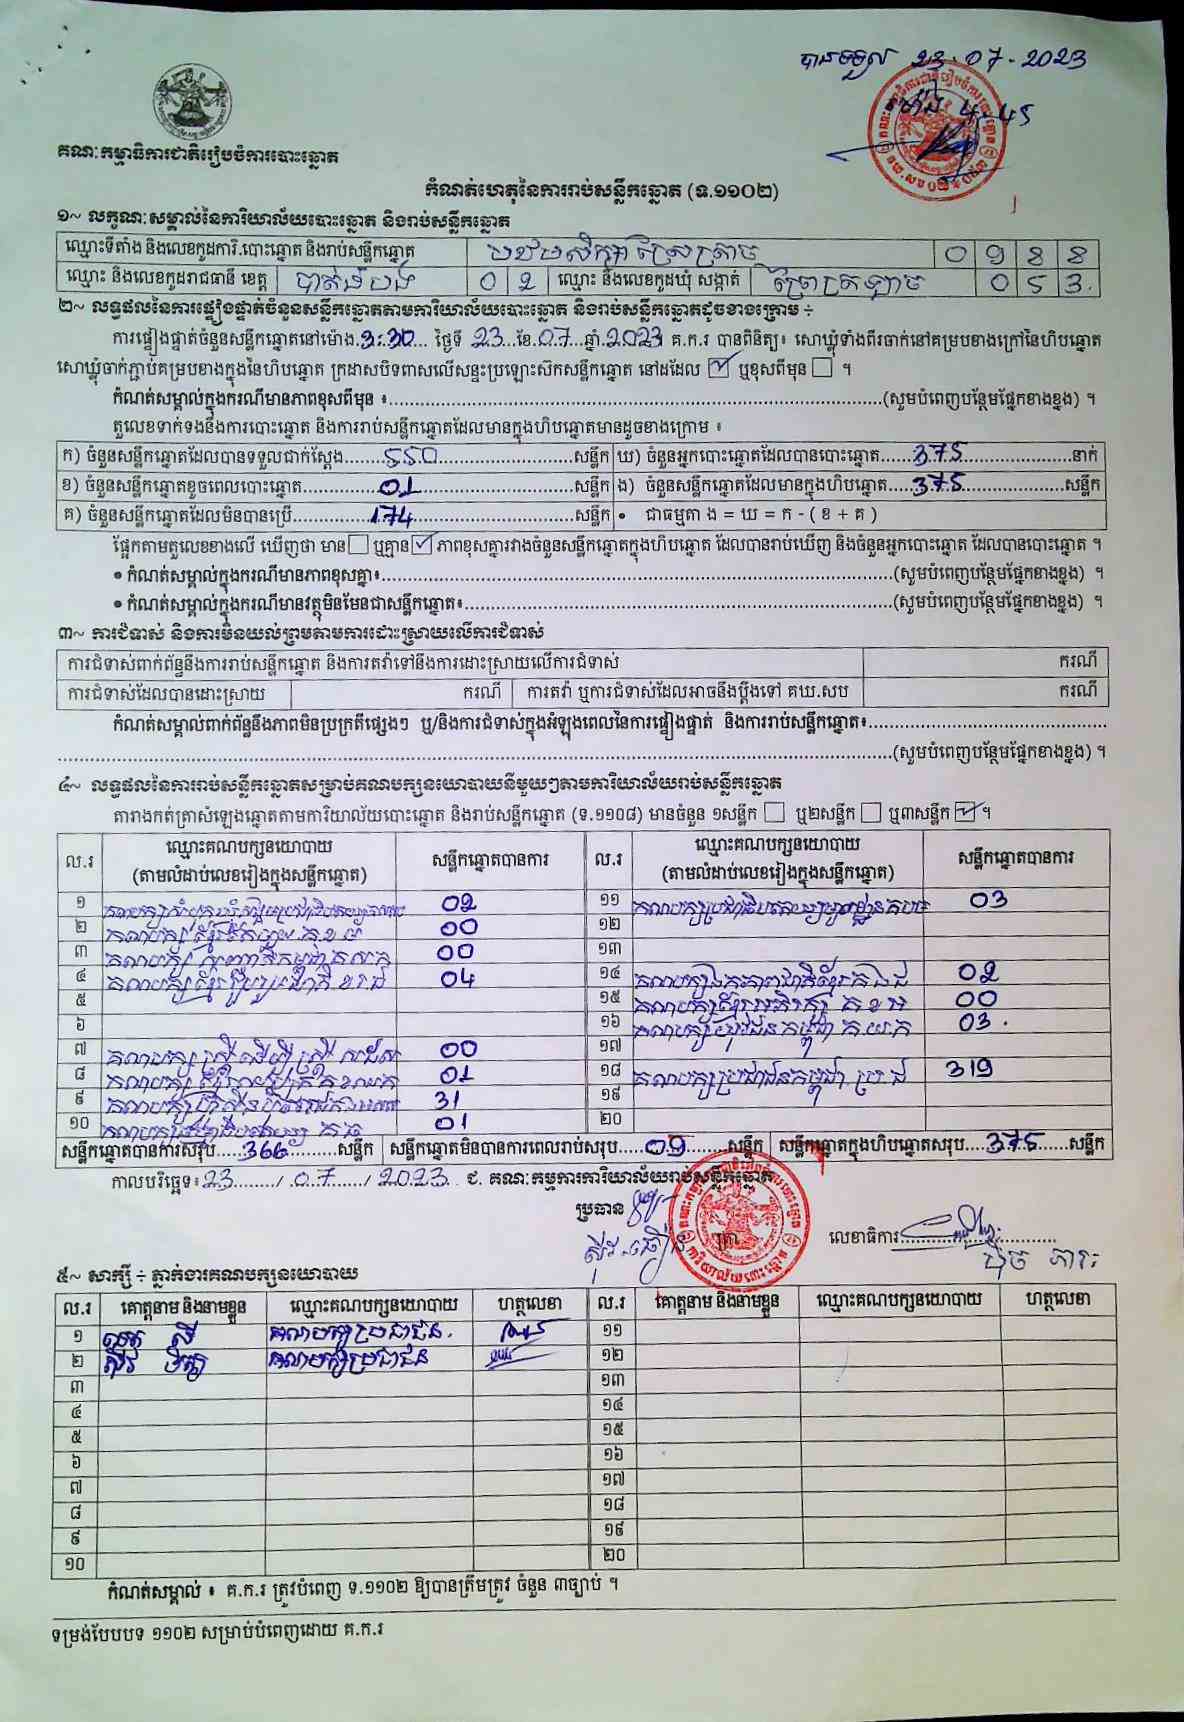 បានទទួល 23.07.2023
ម៉ោង 4.45
គណៈកម្មាធិការជាតិរៀបចំការបោះឆ្នោត
កំណត់ហេតុនៃការរាប់សន្លឹកឆ្នោត (ទ.១១០២)
១~ លក្ខណៈសម្គាល់នៃការិយាល័យបោះឆ្នោត និងរាប់សន្លឹកឆ្នោត
ឈ្មោះទីតាំង និងលេខកូដការិ.បោះឆ្នោត និងរាប់សន្លឹកឆ្នោត
ឈ្មោះ និងលេខកូដរាជធានី ខេត្ត បាត់ដំបង 0 2 ឈ្មោះ និងលេខកូដឃុំ សង្កាត់ 0 5 3
២~ លទ្ធផលនៃការផ្ទៀងផ្ទាត់ចំនួនសន្លឹកឆ្នោតតាមការិយាល័យបោះឆ្នោត និងរាប់សន្លឹកឆ្នោតដូចខាងក្រោម ÷
ការផ្ទៀងផ្ទាត់ចំនួនសន្លឹកឆ្នោតនៅម៉ោង.3:30... ថ្ងៃទី 23...ខែ.07...ឆ្នាំ.2023 គ.ក.រ បានពិនិត្យ៖ សោឃ្លុំទាំងពីរចាក់នៅគម្របខាងក្រៅនៃហិបឆ្នោត
សោឃ្លុំចាក់ភ្ជាប់គម្របខាងក្នុងនៃហិបឆ្នោត ក្រដាសបិទពាសលើសន្ទះប្រឡោះស៊កសន្លឹកឆ្នោត នៅដដែល ☑ ឬខុសពីមុន ☐ ។
កំណត់សម្គាល់ក្នុងករណីមានភាពខុសពីមុន ៖......(សូមបំពេញបន្ថែមផ្នែកខាងខ្នង) ។
តួលេខទាក់ទងនឹងការបោះឆ្នោត និងការរាប់សន្លឹកឆ្នោតដែលមានក្នុងហិបឆ្នោតមានដូចខាងក្រោម ៖
ក) ចំនួនសន្លឹកឆ្នោតដែលបានទទួលជាក់ស្តែង......550......សន្លឹក ឃ) ចំនួនអ្នកបោះឆ្នោតដែលបានបោះឆ្នោត......375......នាក់
ខ) ចំនួនសន្លឹកឆ្នោតខូចពេលបោះឆ្នោត......01......សន្លឹក ង) ចំនួនសន្លឹកឆ្នោតដែលមានក្នុងហិបឆ្នោត......375......សន្លឹក
គ) ចំនួនសន្លឹកឆ្នោតដែលមិនបានប្រើ......174......សន្លឹក • ជាធម្មតា ង = ឃ = ក - ( ខ + គ )
ផ្អែកតាមតួលេខខាងលើ ឃើញថា មាន ☐ ឬគ្មាន ☑ ភាពខុសគ្នារវាងចំនួនសន្លឹកឆ្នោតក្នុងហិបឆ្នោត ដែលបានរាប់ឃើញ និងចំនួនអ្នកបោះឆ្នោត ដែលបានបោះឆ្នោត ។
• កំណត់សម្គាល់ក្នុងករណីមានភាពខុសគ្នា៖......(សូមបំពេញបន្ថែមផ្នែកខាងខ្នង) ។
• កំណត់សម្គាល់ក្នុងករណីមានវត្ថុមិនមែនជាសន្លឹកឆ្នោត៖......(សូមបំពេញបន្ថែមផ្នែកខាងខ្នង) ។
៣~ ការជំទាស់ និងការមិនយល់ព្រមតាមការដោះស្រាយលើការជំទាស់
ការជំទាស់ពាក់ព័ន្ធនឹងការរាប់សន្លឹកឆ្នោត និងការតវ៉ាទៅនឹងការដោះស្រាយលើការជំទាស់ ករណី
ការជំទាស់ដែលបានដោះស្រាយ ករណី ការតវ៉ា ឬការជំទាស់ដែលអាចនឹងប្តឹងទៅ គឃ.សប ករណី
កំណត់សម្គាល់ពាក់ព័ន្ធនឹងភាពមិនប្រក្រតីផ្សេងៗ ឬ/និងការជំទាស់ក្នុងអំឡុងពេលនៃការផ្ទៀងផ្ទាត់ និងការរាប់សន្លឹកឆ្នោត៖......
......(សូមបំពេញបន្ថែមផ្នែកខាងខ្នង) ។
៤~ លទ្ធផលនៃការរាប់សន្លឹកឆ្នោតសម្រាប់គណបក្សនយោបាយនីមួយៗតាមការិយាល័យរាប់សន្លឹកឆ្នោត
តារាងកត់ត្រាសំឡេងឆ្នោតតាមការិយាល័យបោះឆ្នោត និងរាប់សន្លឹកឆ្នោត (ទ.១១០៨) មានចំនួន ១សន្លឹក ☐ ឬ២សន្លឹក ☐ ឬ៣សន្លឹក ☑ ។
ល.រ ឈ្មោះគណបក្សនយោបាយ (តាមលំដាប់លេខរៀងក្នុងសន្លឹកឆ្នោត) សន្លឹកឆ្នោតបានការ ល.រ ឈ្មោះគណបក្សនយោបាយ (តាមលំដាប់លេខរៀងក្នុងសន្លឹកឆ្នោត) សន្លឹកឆ្នោតបានការ
១ 02 ១១ 03
២ 00 ១២
៣ 00 ១៣
៤ 04 ១៤ 02
៥ ១៥ 00
៦ ១៦ គណបក្សយុវជនកម្ពុជា 03
៧ គណបក្សស្ត្រីដើម្បីស្ត្រី 00 ១៧
៨ 01 ១៨ គណបក្សប្រជាជនកម្ពុជា 319
៩ 31 ១៩
១០ 01 ២០
សន្លឹកឆ្នោតបានការសរុប.....366.....សន្លឹក សន្លឹកឆ្នោតមិនបានការពេលរាប់សរុប.....09.....សន្លឹក សន្លឹកឆ្នោតក្នុងហិបឆ្នោតសរុប.....375.....សន្លឹក
កាលបរិច្ឆេទ៖ 23 / 07 / 2023 ជ. គណៈកម្មការការិយាល័យរាប់សន្លឹកឆ្នោត
ប្រធាន លេខាធិការ
៥~ សាក្សី ÷ ភ្នាក់ងារគណបក្សនយោបាយ
ល.រ គោត្តនាម និងនាមខ្លួន ឈ្មោះគណបក្សនយោបាយ ហត្ថលេខា ល.រ គោត្តនាម និងនាមខ្លួន ឈ្មោះគណបក្សនយោបាយ ហត្ថលេខា
១ គណបក្សប្រជាជន ១១
២ គណបក្សប្រជាជន ១២
៣ ១៣
៤ ១៤
៥ ១៥
៦ ១៦
៧ ១៧
៨ ១៨
៩ ១៩
១០ ២០
កំណត់សម្គាល់ ៖ គ.ក.រ ត្រូវបំពេញ ទ.១១០២ ឱ្យបានត្រឹមត្រូវ ចំនួន ៣ច្បាប់ ។
ទម្រង់បែបបទ ១១០២ សម្រាប់បំពេញដោយ គ.ក.រ